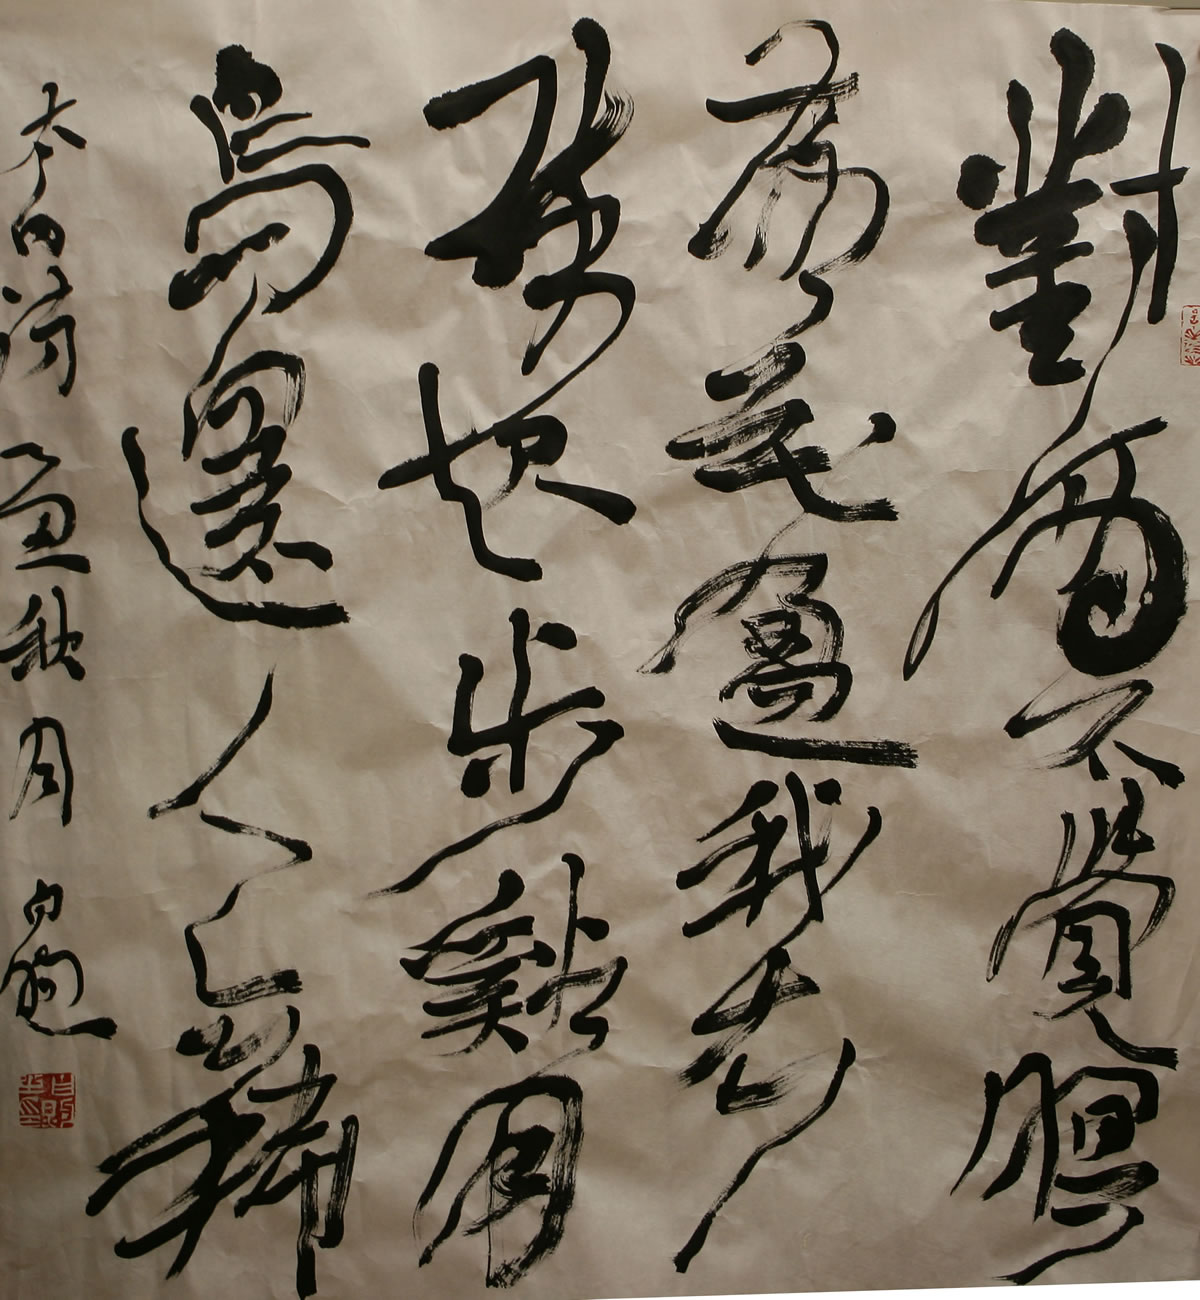 對酒不覺暝
落花盈我衣
醉起步谿月
鳥還人亦稀
太白詩 秋月